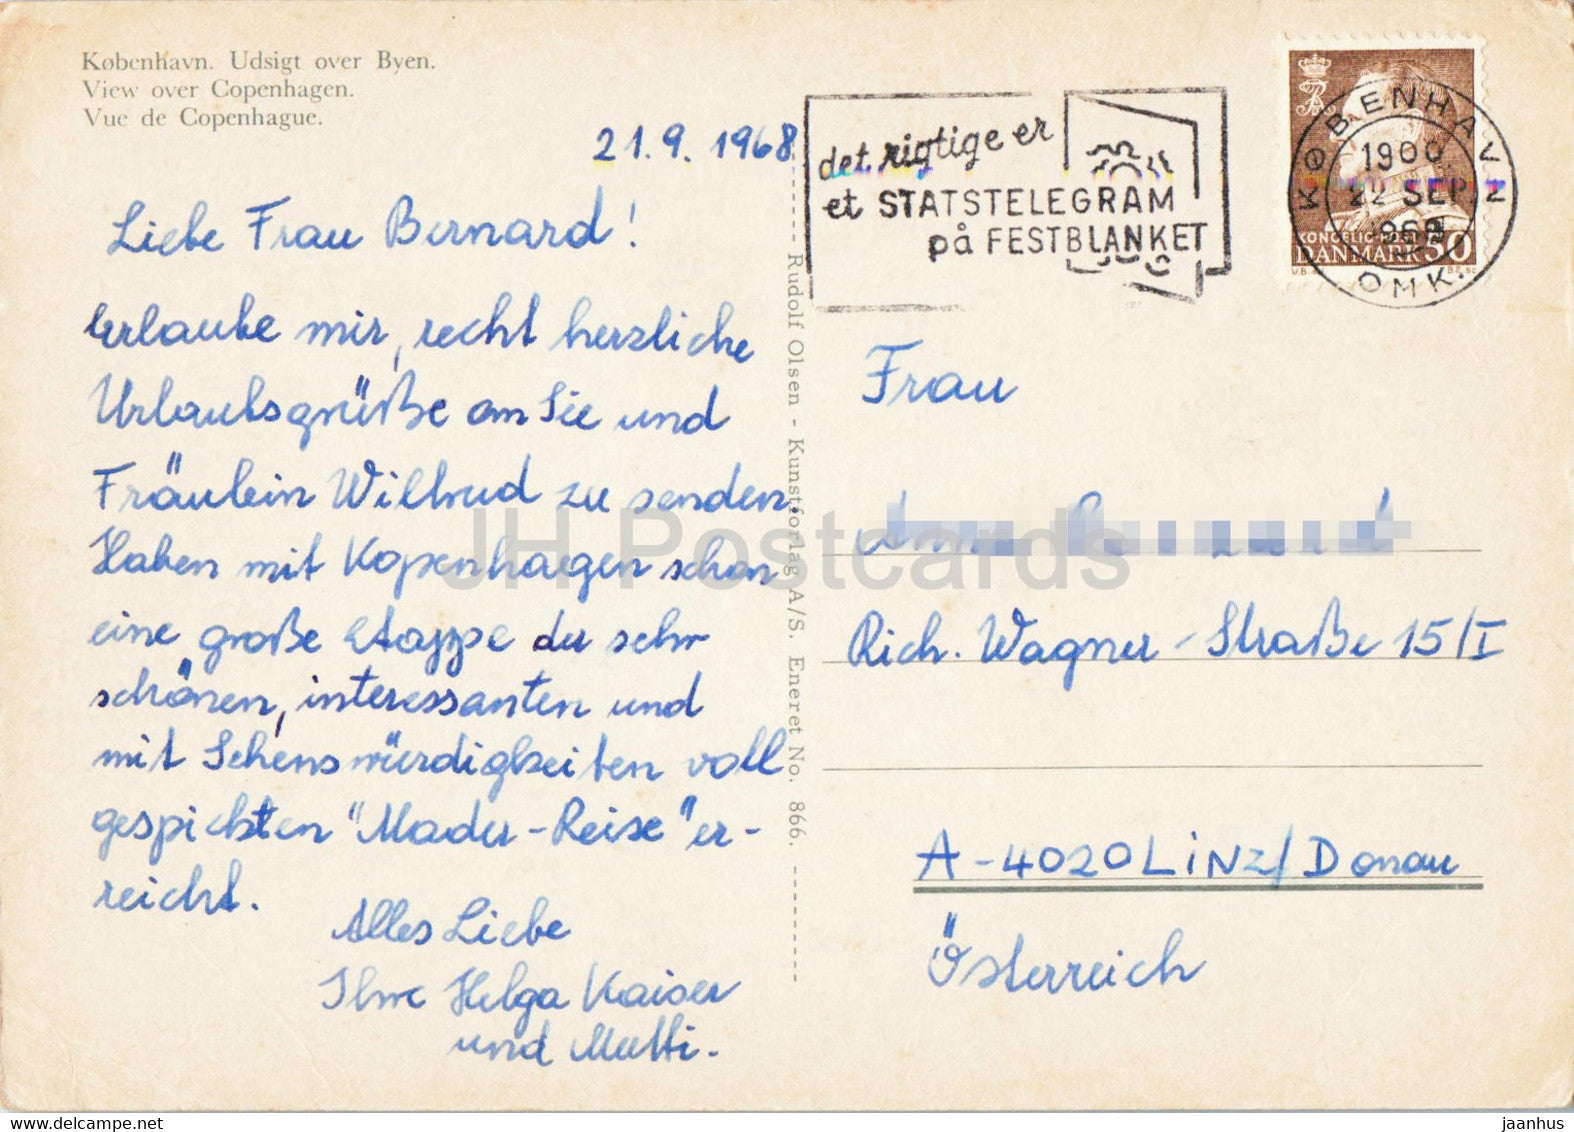 København. Udsigt over Byen.
View over Copenhagen.
Vue de Copenhague.
21.9.1968
Liebe Frau Bernard!
Erlaube mir, recht herzliche
Urlaubsgrüße an Sie und
Fräulein Wiltrud zu senden.
Haben mit Kopenhagen schon
eine große Etappe der sehr
schönen, interessanten und
mit Sehenswürdigkeiten voll
gespickten "Mader-Reise" er-
reicht.
Alles Liebe
Ihre Helga Kaiser
und Mutti.
Rudolf Olsen - Kunstforlag A/S. Eneret No. 866.
det rigtige er
et STATSTELEGRAM
på FESTBLANKET
KØBENHAVN
1900
22 SEP
1968
OMK.
KONGELIG POST
DANMARK 50
Frau
Rich. Wagner-Straße 15/I
A-4020 LINZ/Donau
Österreich
JH Postcards
www.delcampe.net
jaanhus